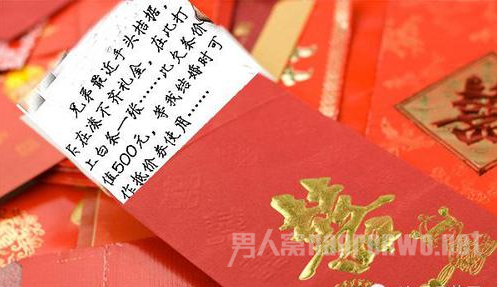 兄弟最近手头拮据,
实在凑不齐礼金,在此打
上白条一张……此欠条价
值500元,等我结婚时可
作抵价券使用……
囍
男人窝nanrenwo.net